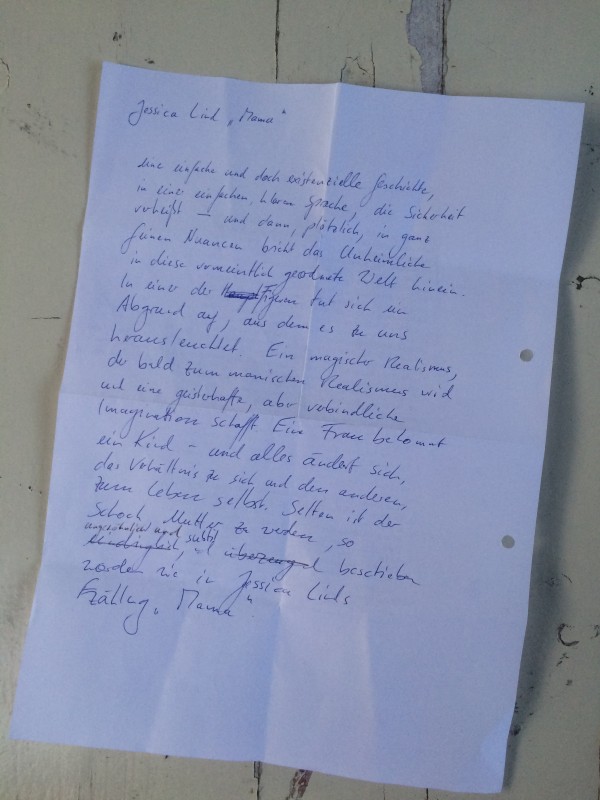 Jessica Lind „Mama“
Eine einfache und doch existenzielle Geschichte,
in einer einfachen, klaren Sprache, die Sicherheit
verheißt – und dann, plötzlich, in ganz
feinen Nuancen bricht das Unheimliche
in diese vermeintlich geordnete Welt hinein.
In einer der Figuren tut sich ein
Abgrund auf, aus dem es zu uns
herausleuchtet. Ein magischer Realismus,
der bald zum manischen Realismus wird
und eine geisterhafte, aber verbindliche
Imagination schafft. Eine Frau bekommt
ein Kind – und alles ändert sich,
das Verhältnis zu sich und den anderen,
zum Leben selbst. Selten ist der
Schock Mutter zu werden, so
und subtil
eindringlich, überzeugend beschrieben
worden wie in Jessica Linds
Erzählung „Mama“.